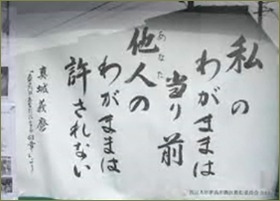 私の
わがままは
当り前
他人の
あなた
わがままは
許されない
真城義麿